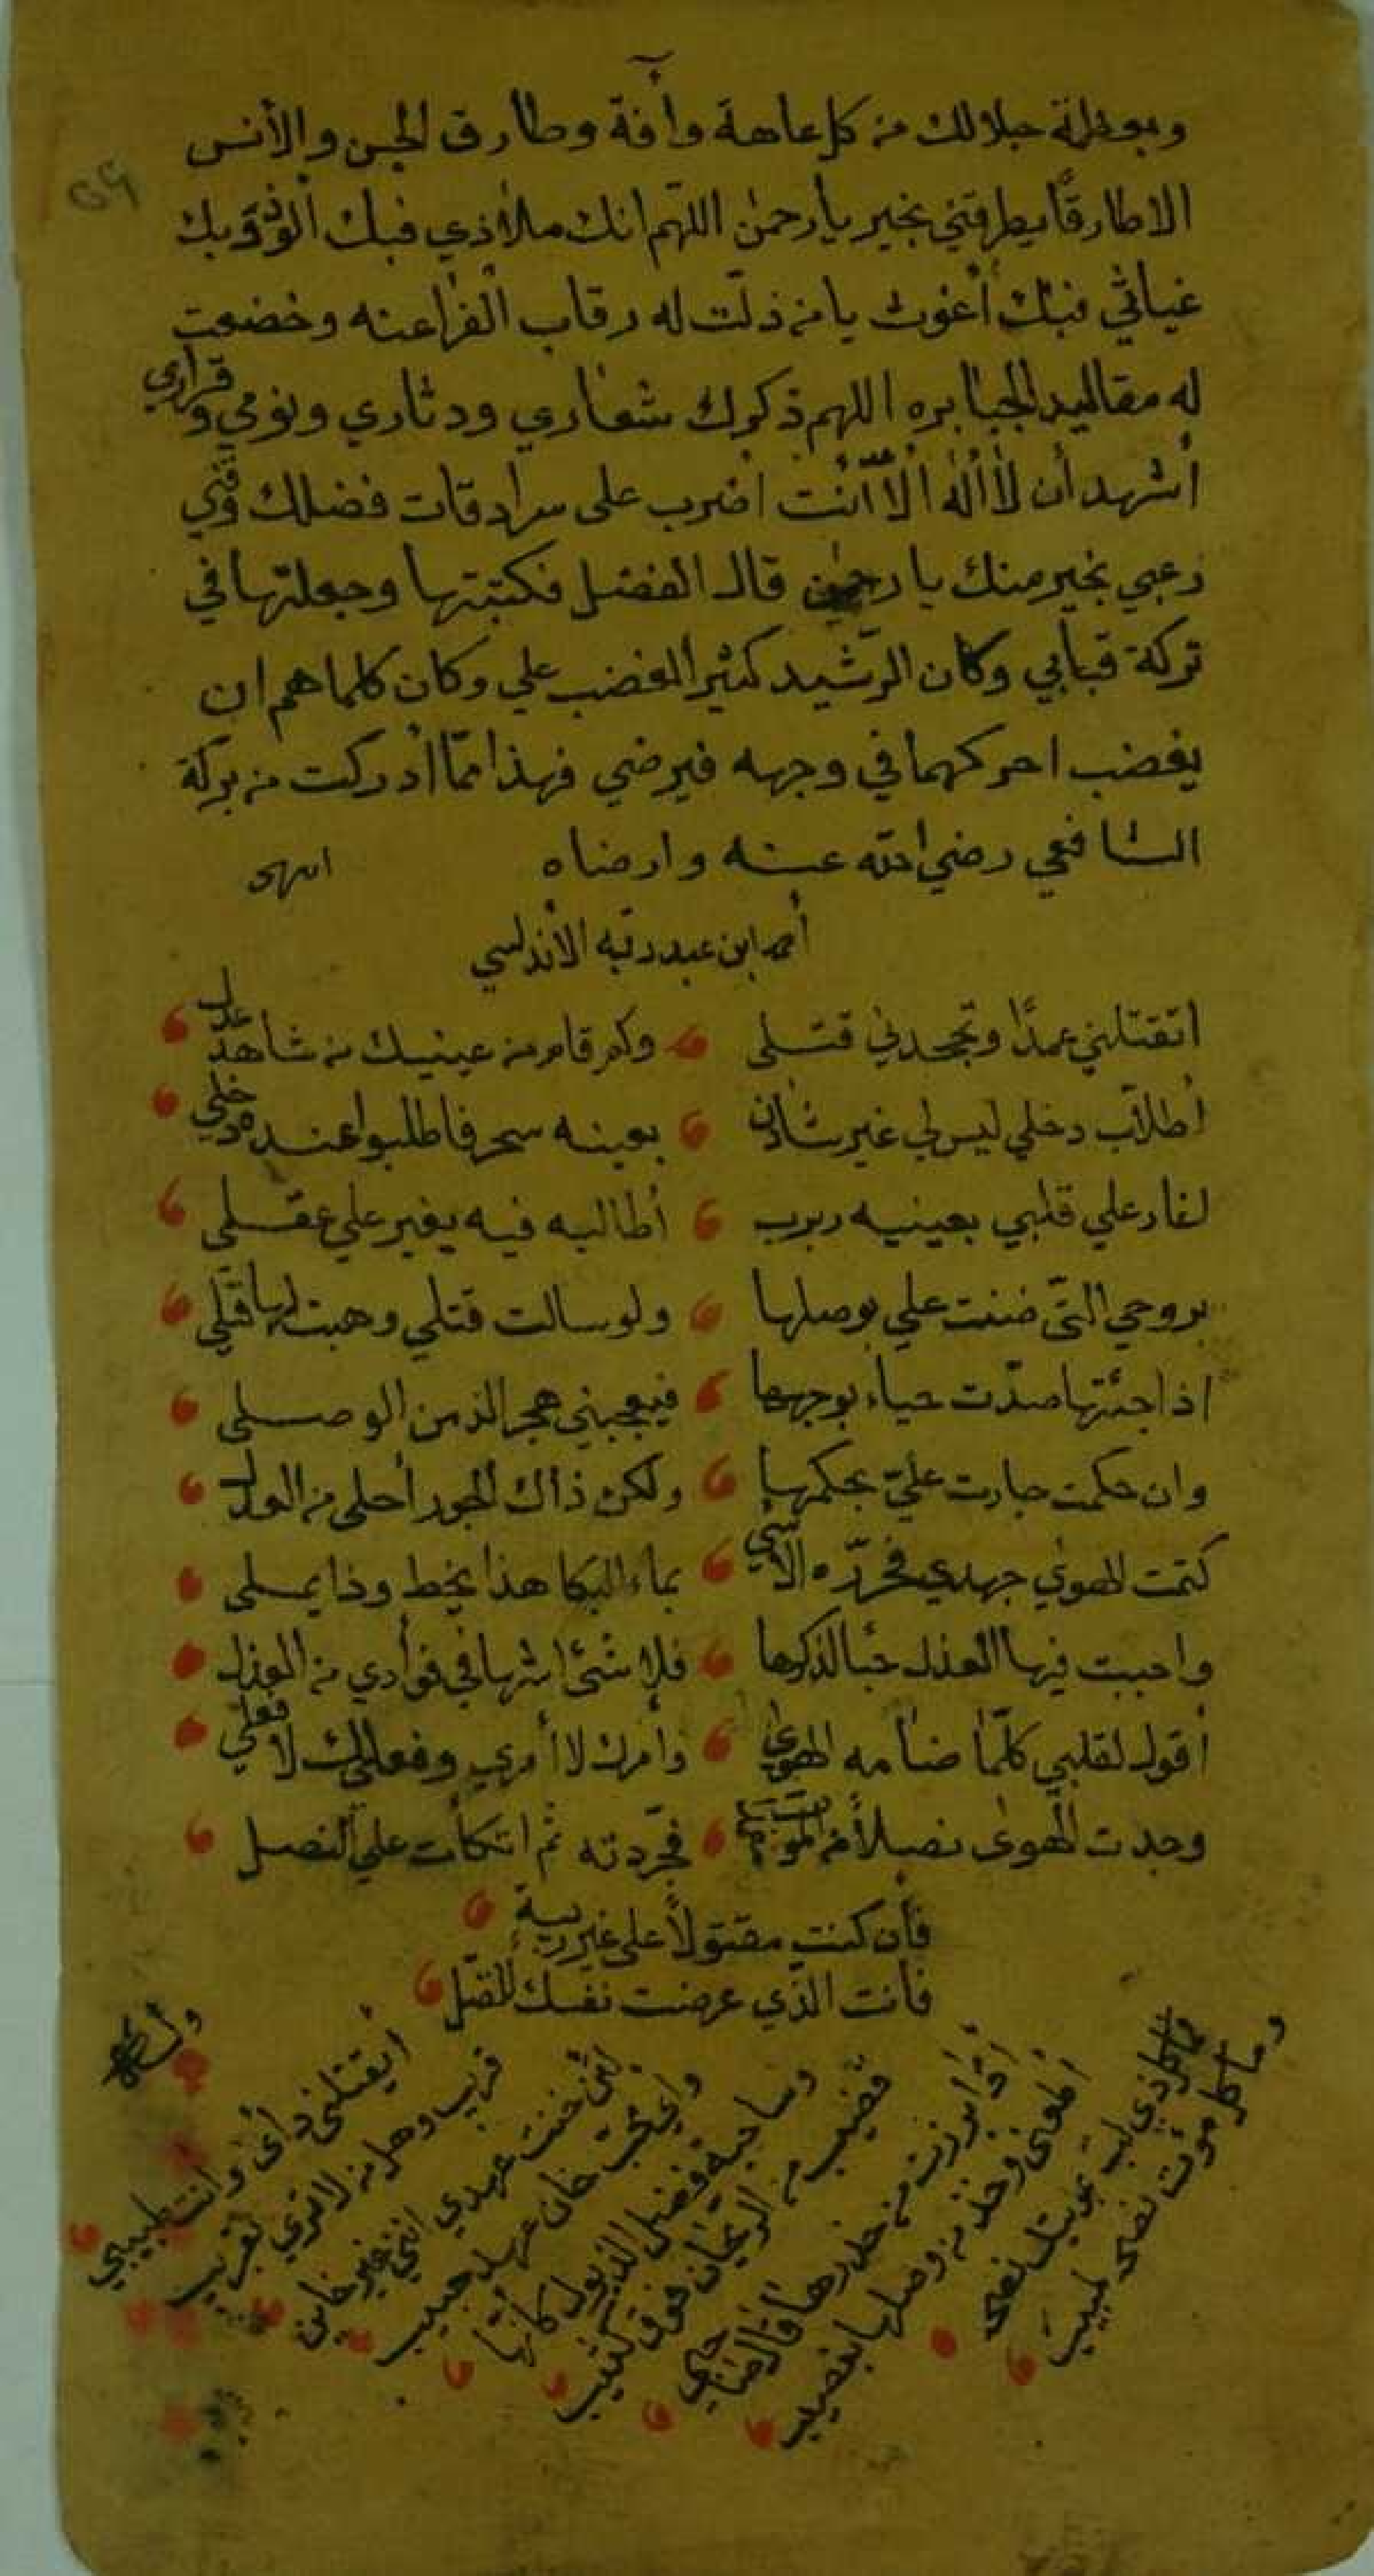 وبعظمة جلالك من كل عاهة وأفة وطارق الجن والأنس
الا طارقًا يطرقني بخير يا رحمن اللهم انك ملاذي فبك الوذ وبك
غياثي فبك أغوث يا من ذلت له رقاب الفراعنه وخضعت
له مقاليد الجبابره اللهم ذكرك شعاري ودثاري ونومي وقراري
أشهد أن لا اله الا أنت اضرب على سرادقات فضلك وقني
رعبي بخير منك يا رحمن قال الفضل فكتبتها وجعلتها في
تركة قبابي وكان الرشيد كثير الغضب علي وكان كلما هم ان
يغضب احركهما في وجهه فيرضي فهذا مما أدركت من بركة
الشافعي رضي الله عنه وارضاه انتهى
أحمد ابن عبد ربه الأندلسي
اتقتلني عمدًا وتجحدني قتلى وكم قام من عينيك من شاهد عدل
أطلاب دخلي ليس لي غير شادن بعينه سحر فاطلبوا عنده دخلي
لغار علي قلبي بعينيه ربرب أطالبه فيه يغير علي عقلي
بروحي التي ضنت علي بوصلها ولو سالت قتلي وهبت لها قتلي
اذا جئتها صدّت حياء بوجهها فيعجبني هجر الذ من الوصلى
وان حكمت جارت عليّ بحكمها ولكن ذاك الجور أحلى من العدل
كتمت الهوي جهدي فجرّده الأسي بماء البكا هذا يخط وذا يملى
واحببت فيها العذل حبًا لذكرها فلا شئ اشها في فوأدي من العذل
أقول لقلبي كلّما ضامه الهوي وامرك لا أمري وفعلك لا فعلي
وجدت الهوى نصلاً من الموت فجرّدته ثم اتكأت علي النصل
فأن كنت مقتولاً على غير ريبة
فأنت الذي عرضت نفسك للقتل
وله
ايقتلني دائى وانت طبيبي
قريب وهل من لا قري بقريب
لئن خنت عهدي انني غير خاين
واي محب خان عهد حبيب
وساحبة فضل الذيول كانها
قضيب من الريحان فوق كثيب
اذا برزت من خدرها قال صاحبي
اطعنى وخذ من وصلها بنصيب
وما كل ذي لب بمؤتيك نصحه
وما كل مؤت نصحه بلبيب